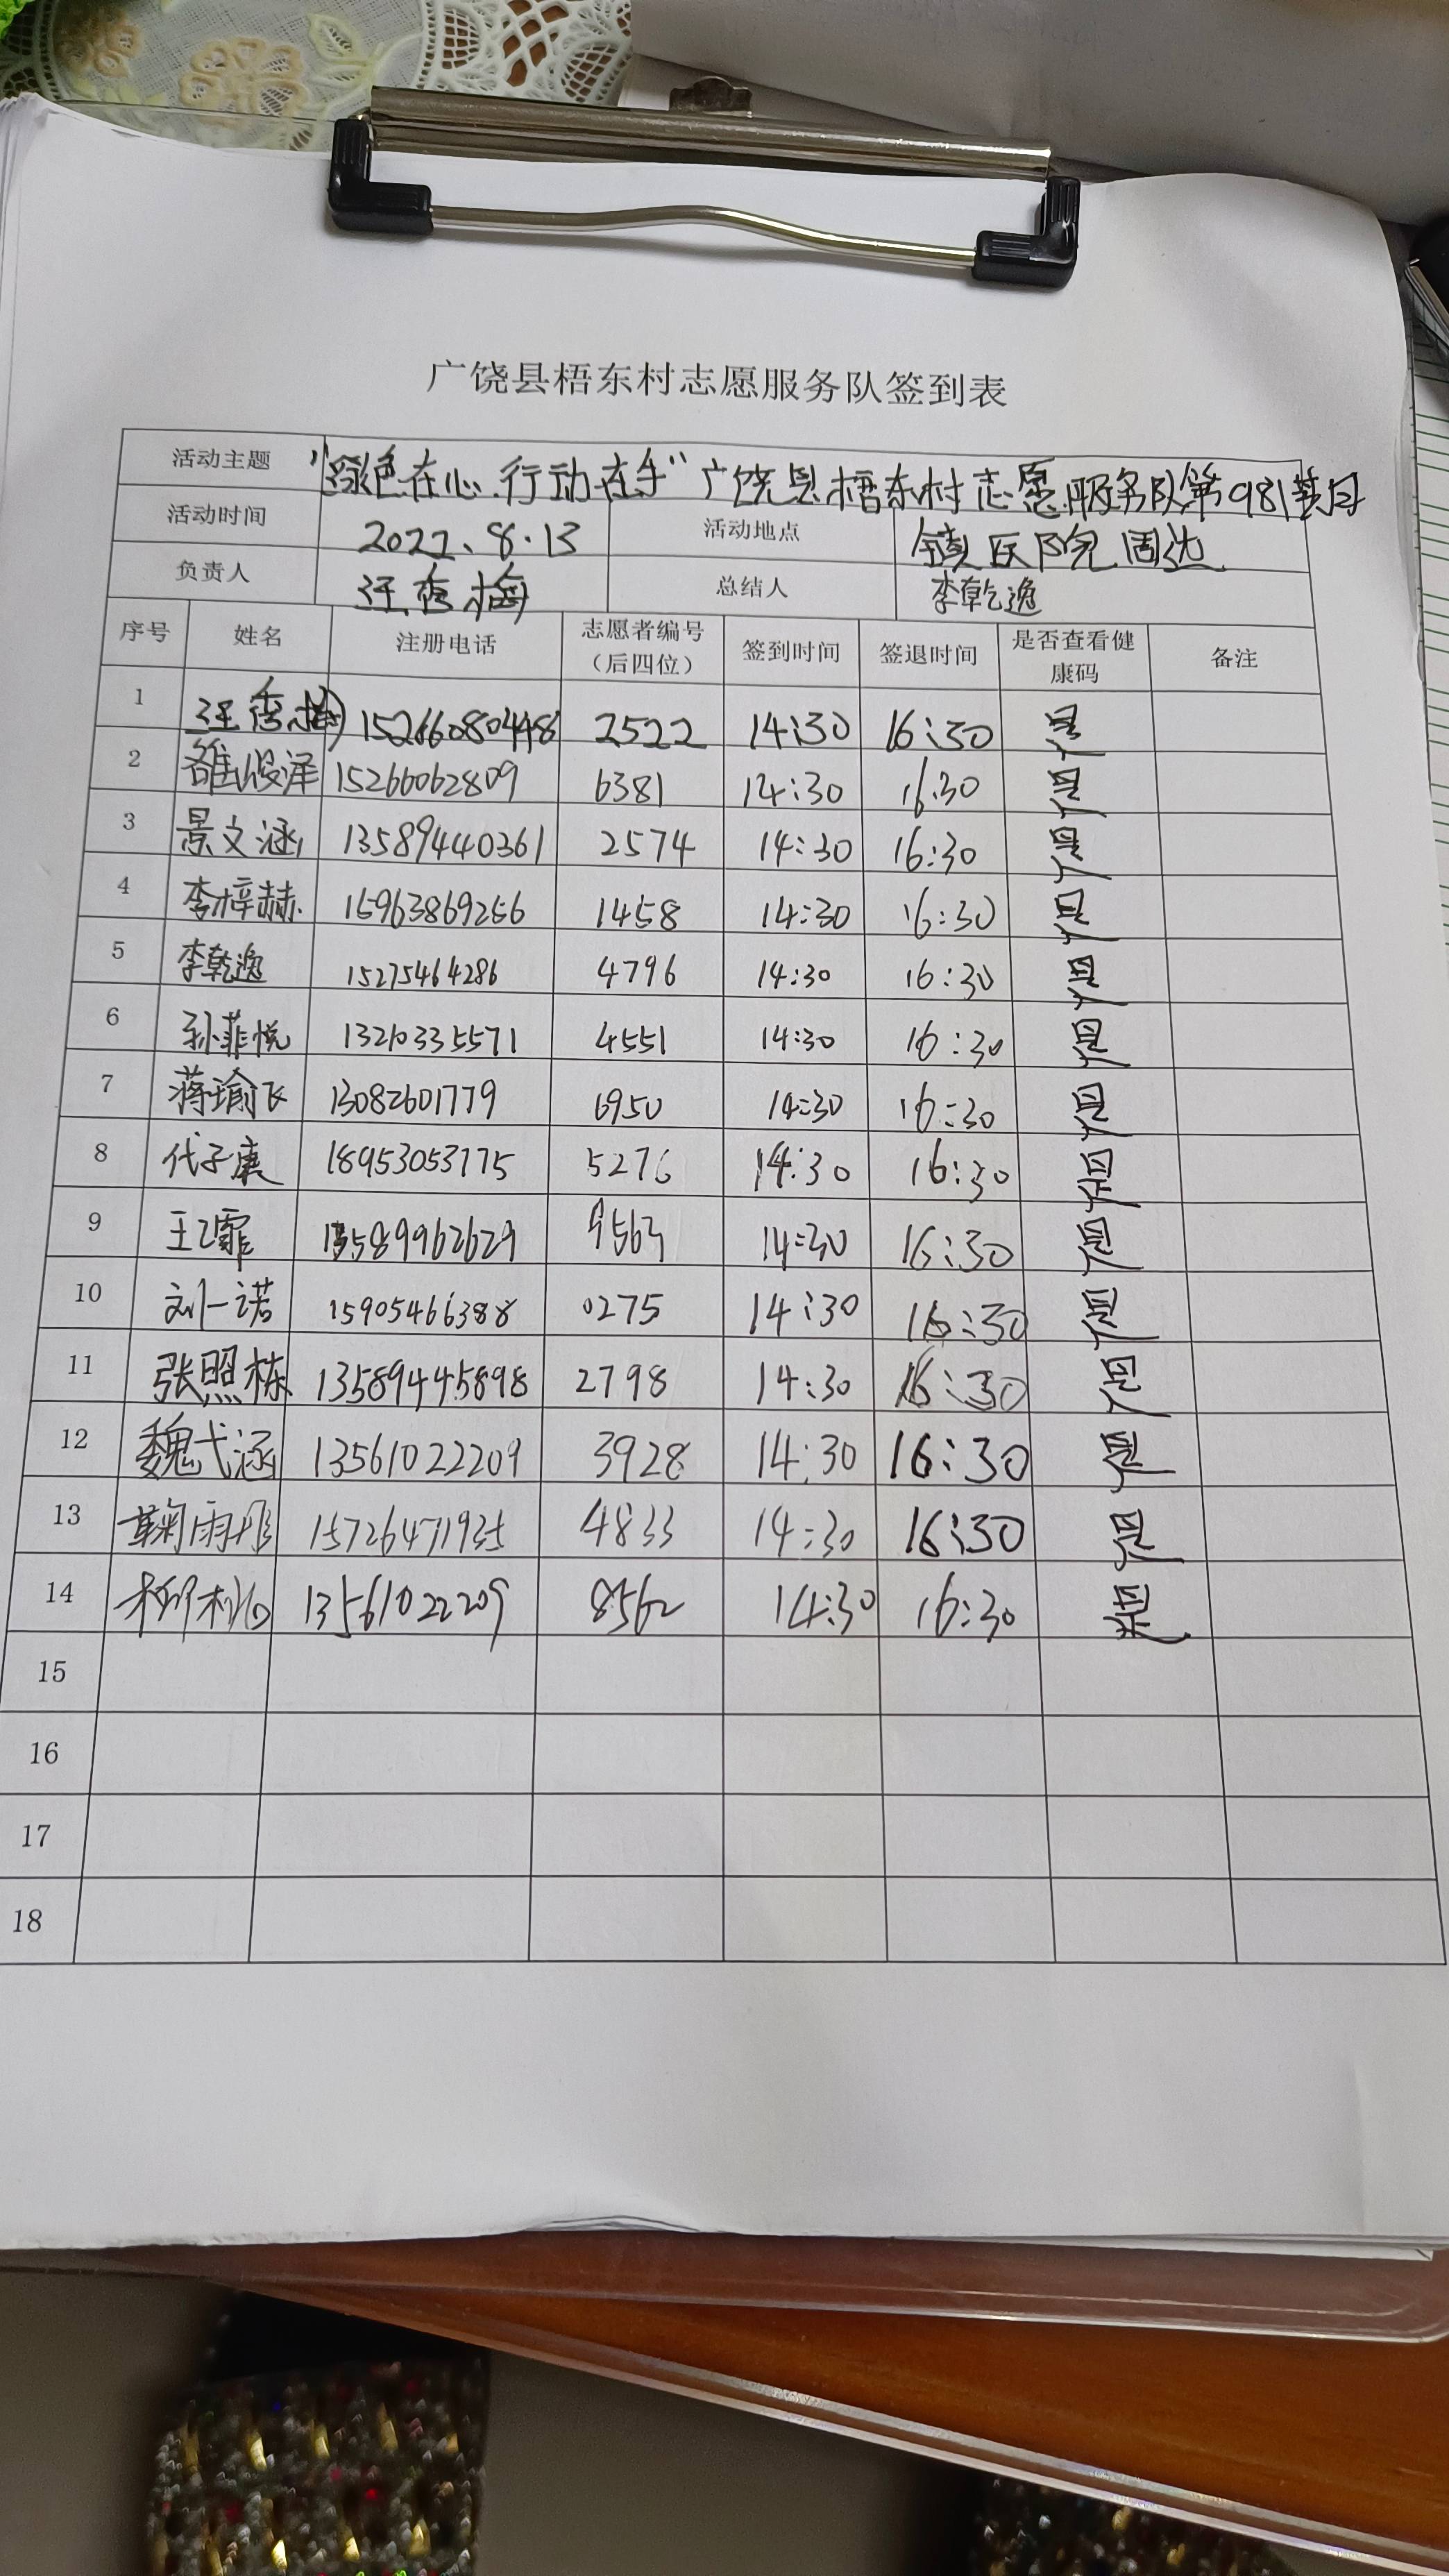 广饶县梧东村志愿服务队签到表
活动主题 "绿色在心.行动在手"广饶县梧东村志愿服务队第981期
活动时间 2022.8.13 活动地点 镇医院周边
负责人 汪秀梅 总结人 李乾逸
序号 姓名 注册电话 志愿者编号（后四位） 签到时间 签退时间 是否查看健康码 备注
1 汪秀梅 15266080448 2522 14:30 16:30 是
2 15266062809 6381 14:30 16:30 是
3 景文涵 13589440361 2574 14:30 16:30 是
4 李梓赫 15963869256 1458 14:30 16:30 是
5 李乾逸 15275464286 4796 14:30 16:30 是
6 孙菲悦 13210335571 4551 14:30 16:30 是
7 蒋瑜飞 13082601779 6950 14:30 16:30 是
8 代子康 18953053775 5276 14:30 16:30 是
9 王 霏 13589962629 9563 14:30 16:30 是
10 刘一诺 15905466388 0275 14:30 16:30 是
11 张照栋 13589445898 2798 14:30 16:30 是
12 魏弋涵 13561022209 3928 14:30 16:30 是
13 鞠雨彤 15726471935 4833 14:30 16:30 是
14 13561022209 8562 14:30 16:30 是
15
16
17
18